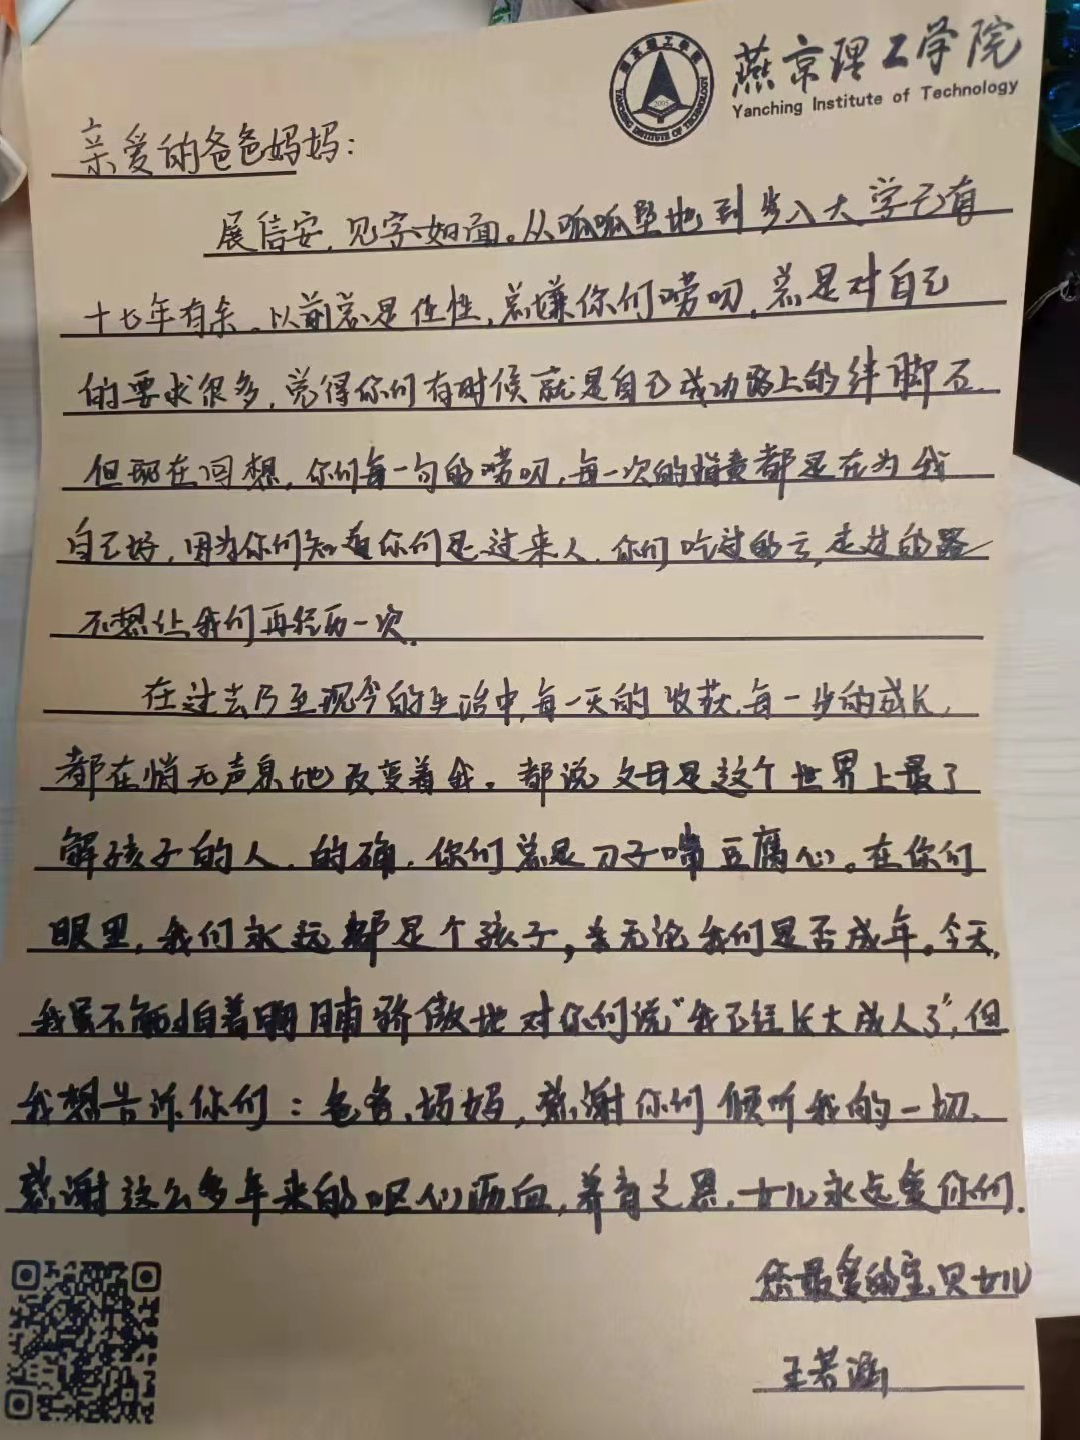 燕京理工学院
Yanching Institute of Technology
燕京理工学院
YANCHING INSTITUTE OF TECHNOLOGY
2005
亲爱的爸爸妈妈：
展信安，见字如面。从呱呱坠地到步入大学已有
十七年有余。以前总是任性，总嫌你们唠叨，总是对自己
的要求很多，觉得你们有时候就是自己成功路上的绊脚石
但现在回想，你们每一句的唠叨，每一次的指责都是在为我
自己好，因为你们知道你们是过来人，你们吃过的亏，走过的路
不想让我们再经历一次。
在过去乃至现今的生活中，每一天的收获，每一步的成长，
都在悄无声息地改变着我。都说父母是这个世界上最了
解孩子的人，的确，你们总是刀子嘴豆腐心。在你们
眼里，我们永远都是个孩子，无论我们是否成年。今天，
我虽不能拍着胸脯骄傲地对你们说“我已经长大成人了”，但
我想告诉你们：爸爸、妈妈，感谢你们倾听我的一切，
感谢这么多年来的呕心沥血，养育之恩，女儿永远爱你们。
您最爱的宝贝女儿
王若涵